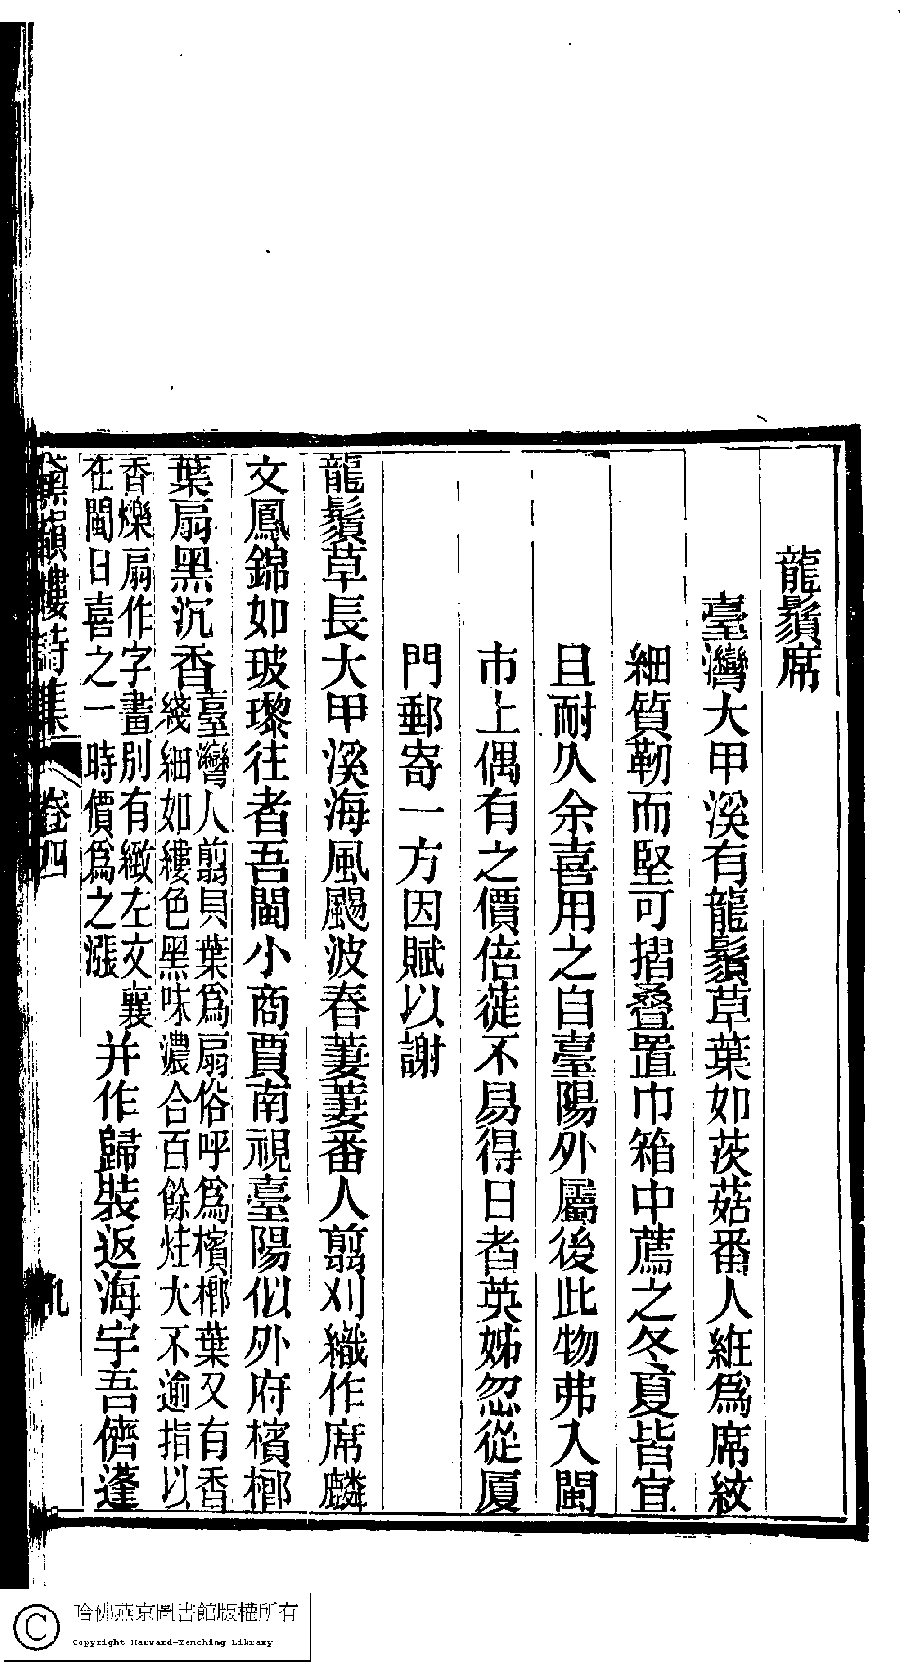 龍鬚席
臺灣大甲溪有龍鬚草葉如茨菇番人絍爲席紋
細質勒而堅可摺叠置巾箱中薦之冬夏皆宜
且耐久余喜用之自臺陽外屬後此物弗入閩
市上偶有之價倍蓰不易得日者英姊忽從厦
門郵寄一方因賦以謝
龍鬚草長大甲溪海風颺波春萋萋番人剪刈織作席麟
文鳳錦如玻瓈往者吾閩小商賈南視臺陽似外府檳榔
葉扇黑沉香
臺灣人翦貝葉爲扇俗呼爲檳榔葉又有香
綫細如縷色黑味濃合百餘炷大不逾指以
香爍扇作字畫別有緻左文襄
在閩日喜之一時價爲之漲
并作歸裝返海宇吾儕蓬
樓詩集
卷四
九
哈佛燕京圖書館版權所有
Copyright Harvard-Yenching Library